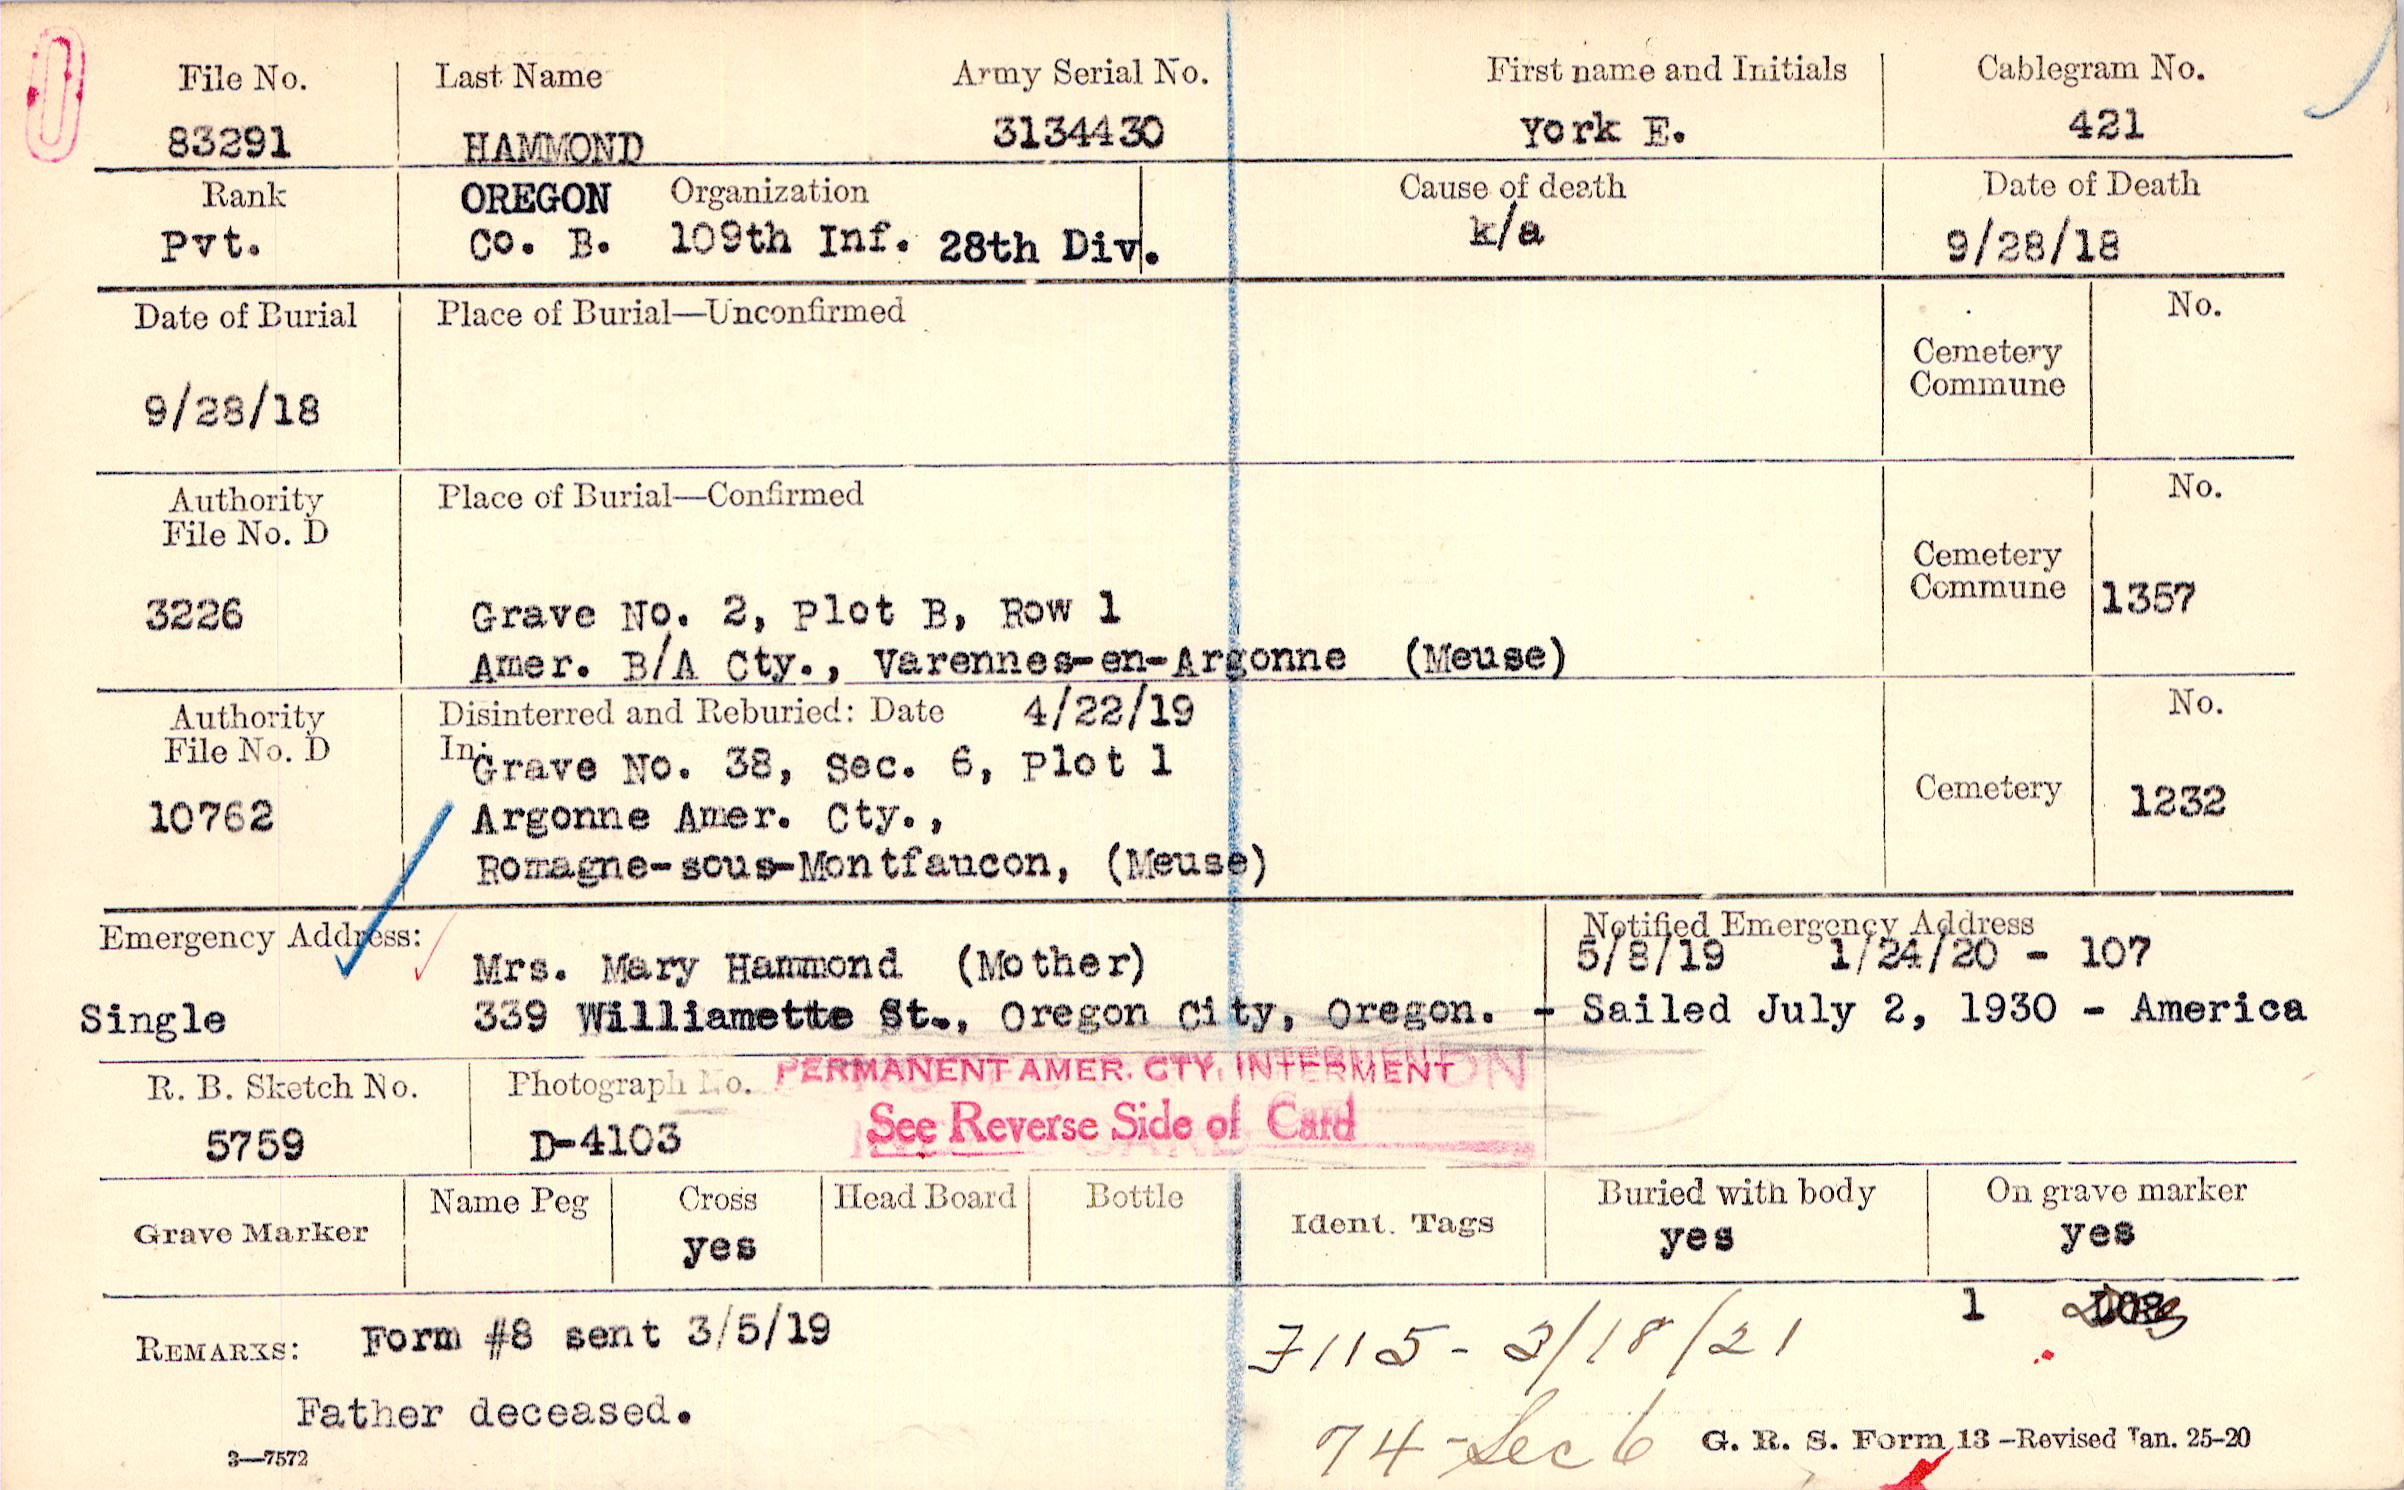 File No. Last Name Army Serial No. First name and Initials Cablegram No.
83291 HAMMOND 3134430 York E. 421
Rank OREGON Organization Cause of death Date of Death
Pvt. Co. B. 109th Inf. 28th Div. k/a 9/28/18
Date of Burial Place of Burial—Unconfirmed No.
Cemetery
Commune
9/28/18
Authority Place of Burial—Confirmed No.
File No. D
Cemetery
Commune 1357
3226 Grave No. 2, Plot B, Row 1
Amer. B/A Cty., Varennes-en-Argonne (Meuse)
Authority Disinterred and Reburied: Date 4/22/19 No.
File No. D In: Grave No. 38, Sec. 6, Plot 1
Cemetery 1232
10762 Argonne Amer. Cty.,
Romagne-sous-Montfaucon, (Meuse)
Emergency Address: Notified Emergency Address
Mrs. Mary Hammond (Mother) 5/8/19 1/24/20 - 107
Single 339 Williamette St., Oregon City, Oregon. - Sailed July 2, 1930 - America
R. B. Sketch No. Photograph No. PERMANENT AMER. CTY. INTERMENT
5759 D-4103 See Reverse Side of Card
Name Peg Cross Head Board Bottle Buried with body On grave marker
Grave Marker yes Ident. Tags yes yes
1
REMARKS: Form #8 sent 3/5/19 7115 - 3/18/21
Father deceased.
74 - Sec 6 G. R. S. Form 13—Revised Jan. 25-20
3—7572